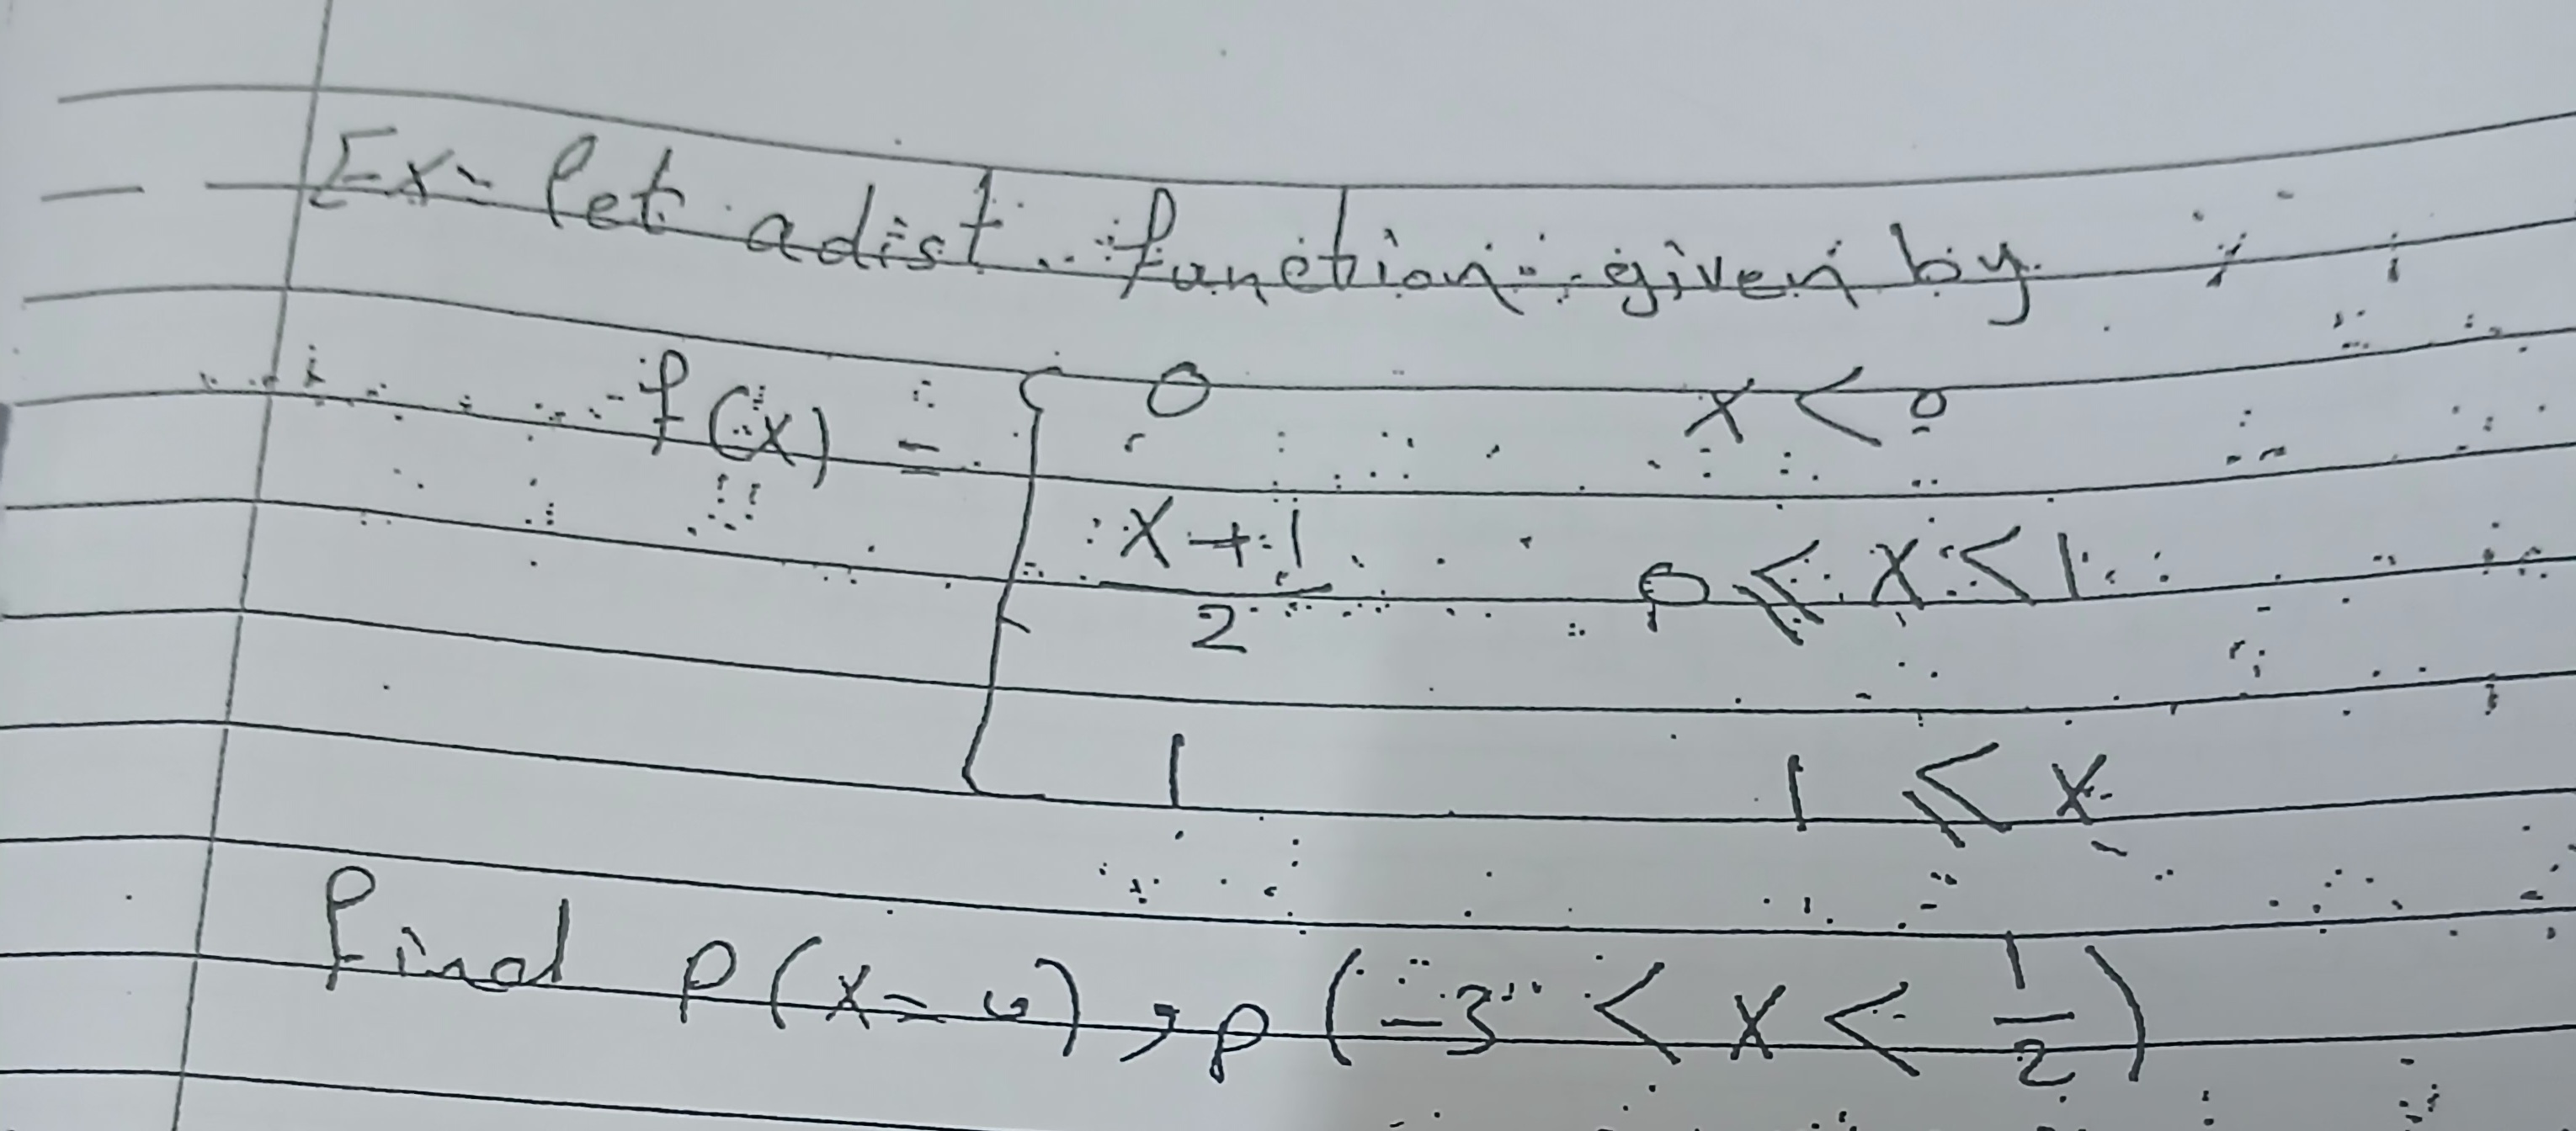 Ex- let a dist. function given by
f(x) = { 0 x < 0
x+1/2 0 ⩽ x < 1
1 1 ⩽ x
find P(x = 0), P(-3 < x < 1/2)